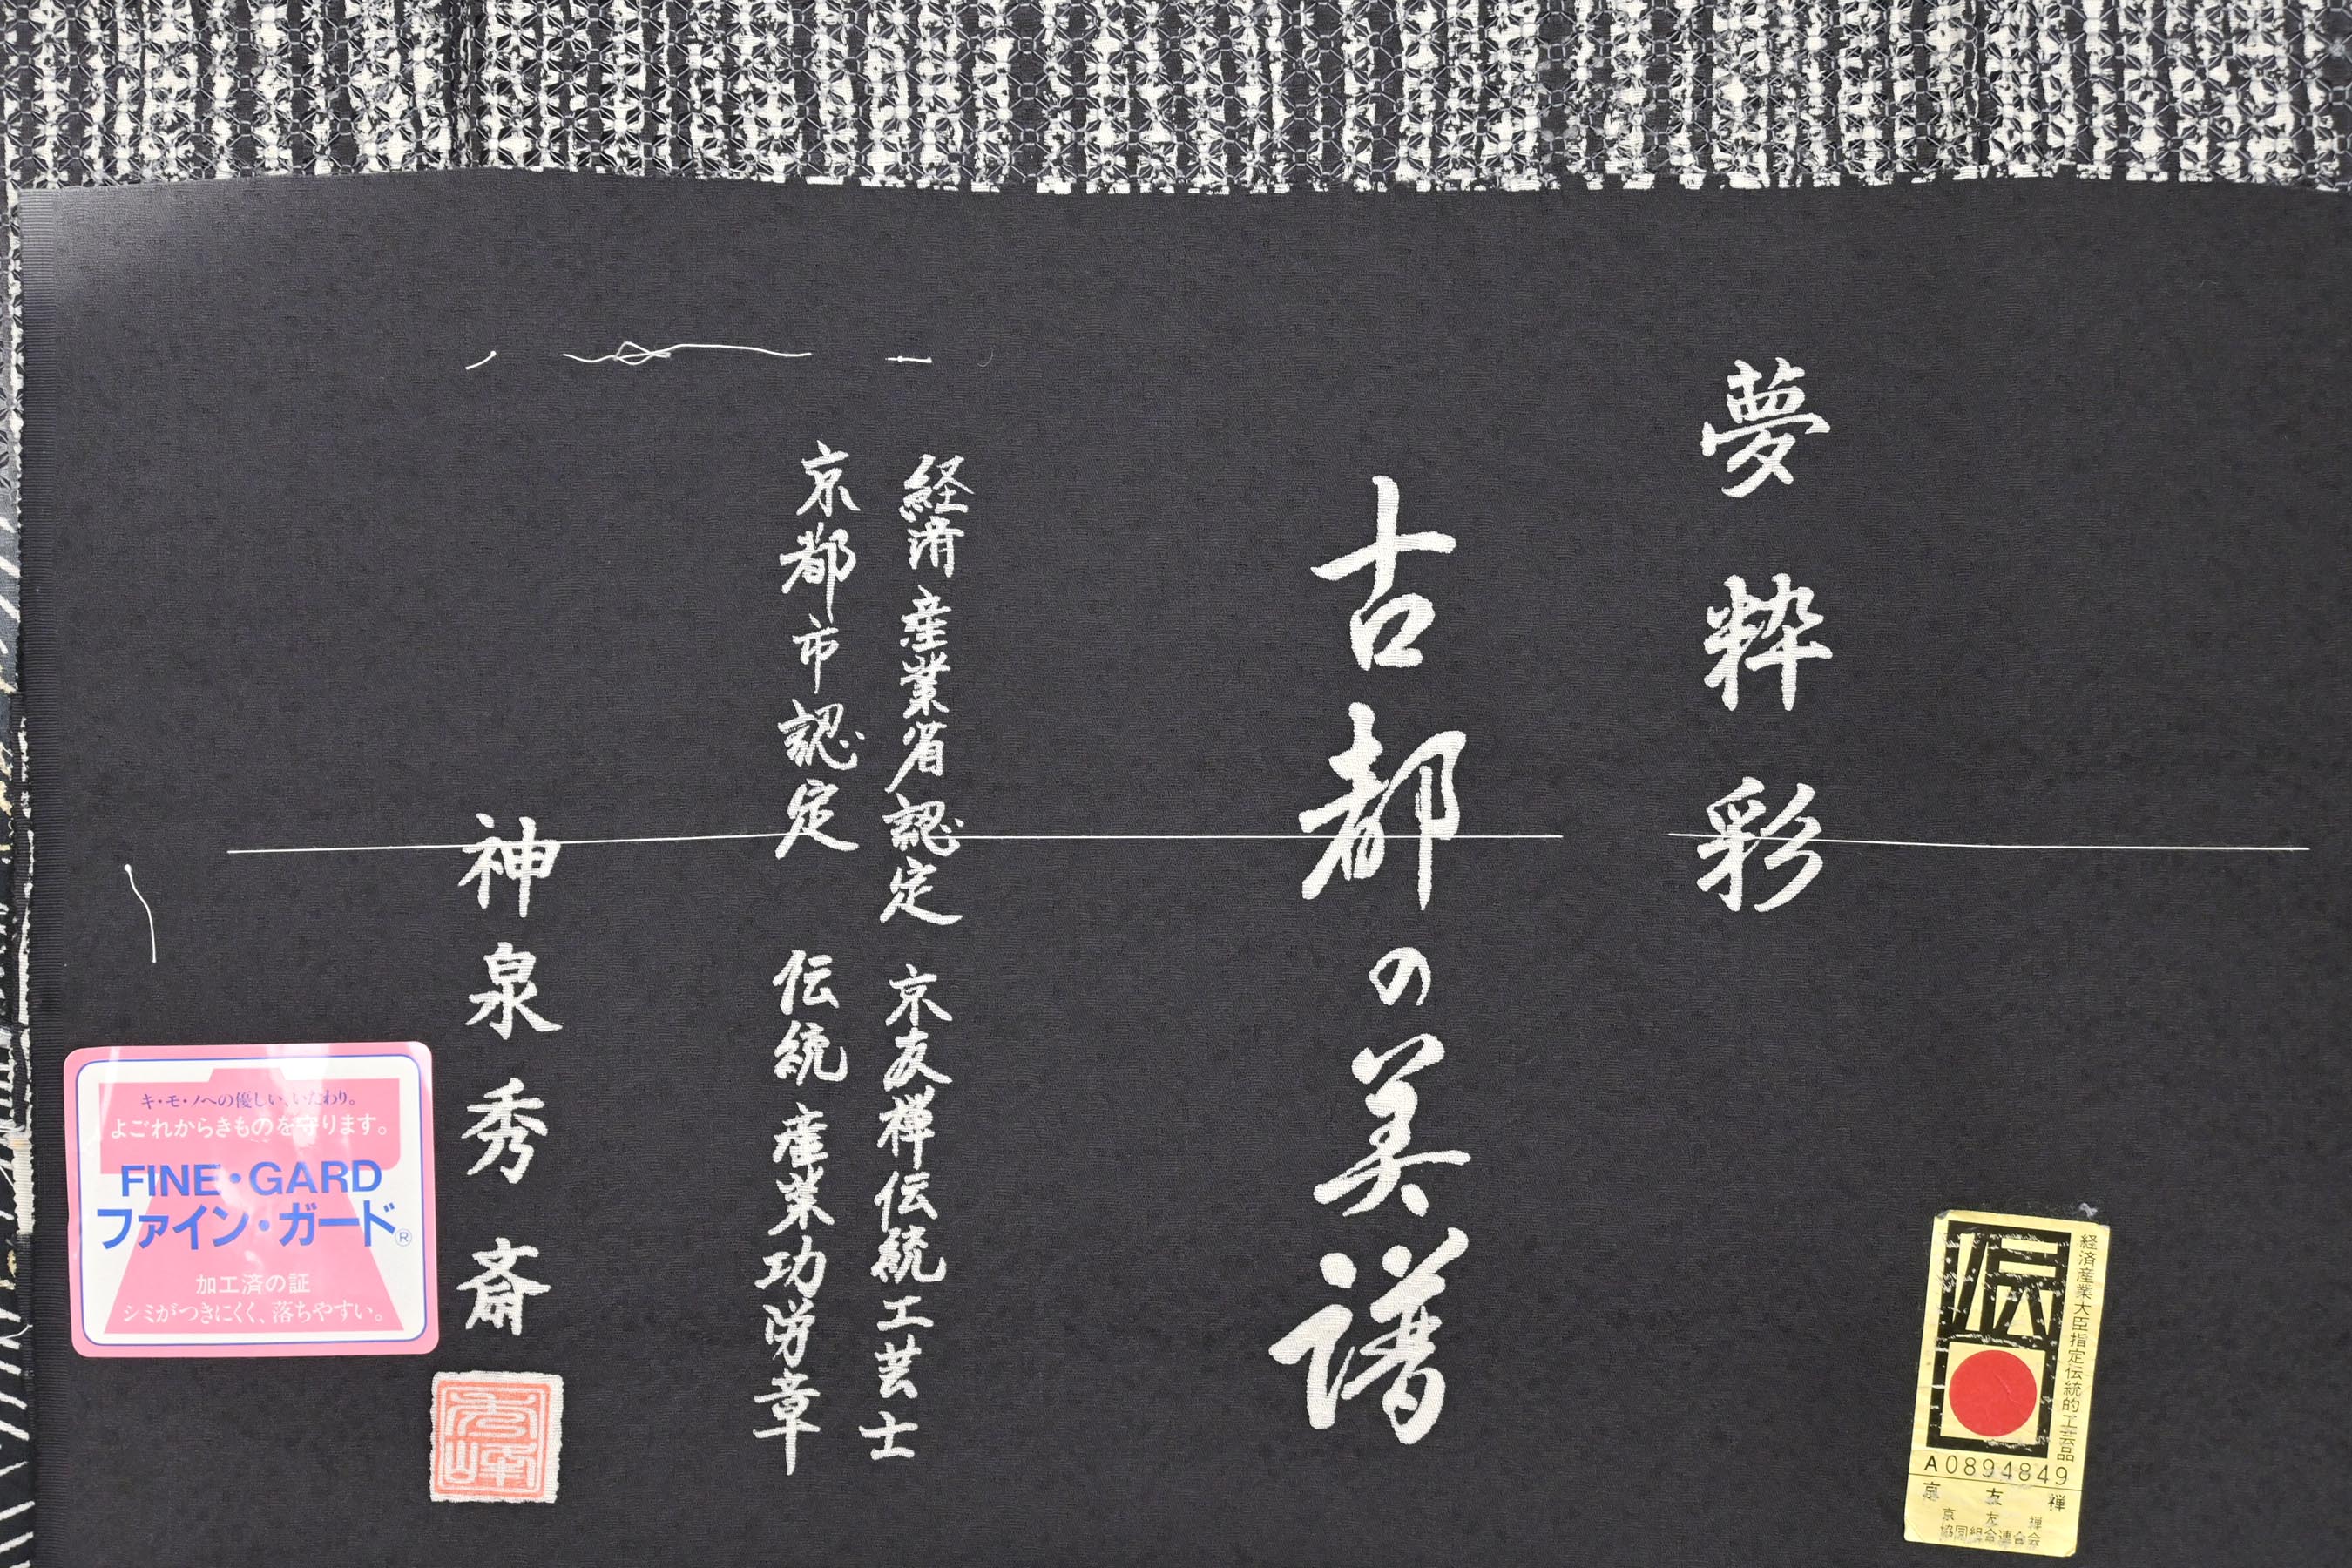 夢粋彩
古都の美譜
経済産業省認定 京友禅伝統工芸士
京都市認定 伝統産業功労章
神泉秀斎
キ・モ・ノへの優しい、いたわり。
よごれからきものを守ります。
FINE・GARD
ファイン・ガード®
加工済の証
シミがつきにくく、落ちやすい。
経済産業大臣指定伝統的工芸品
伝
A0894849
京友禅
京友禅
協同組合連合会